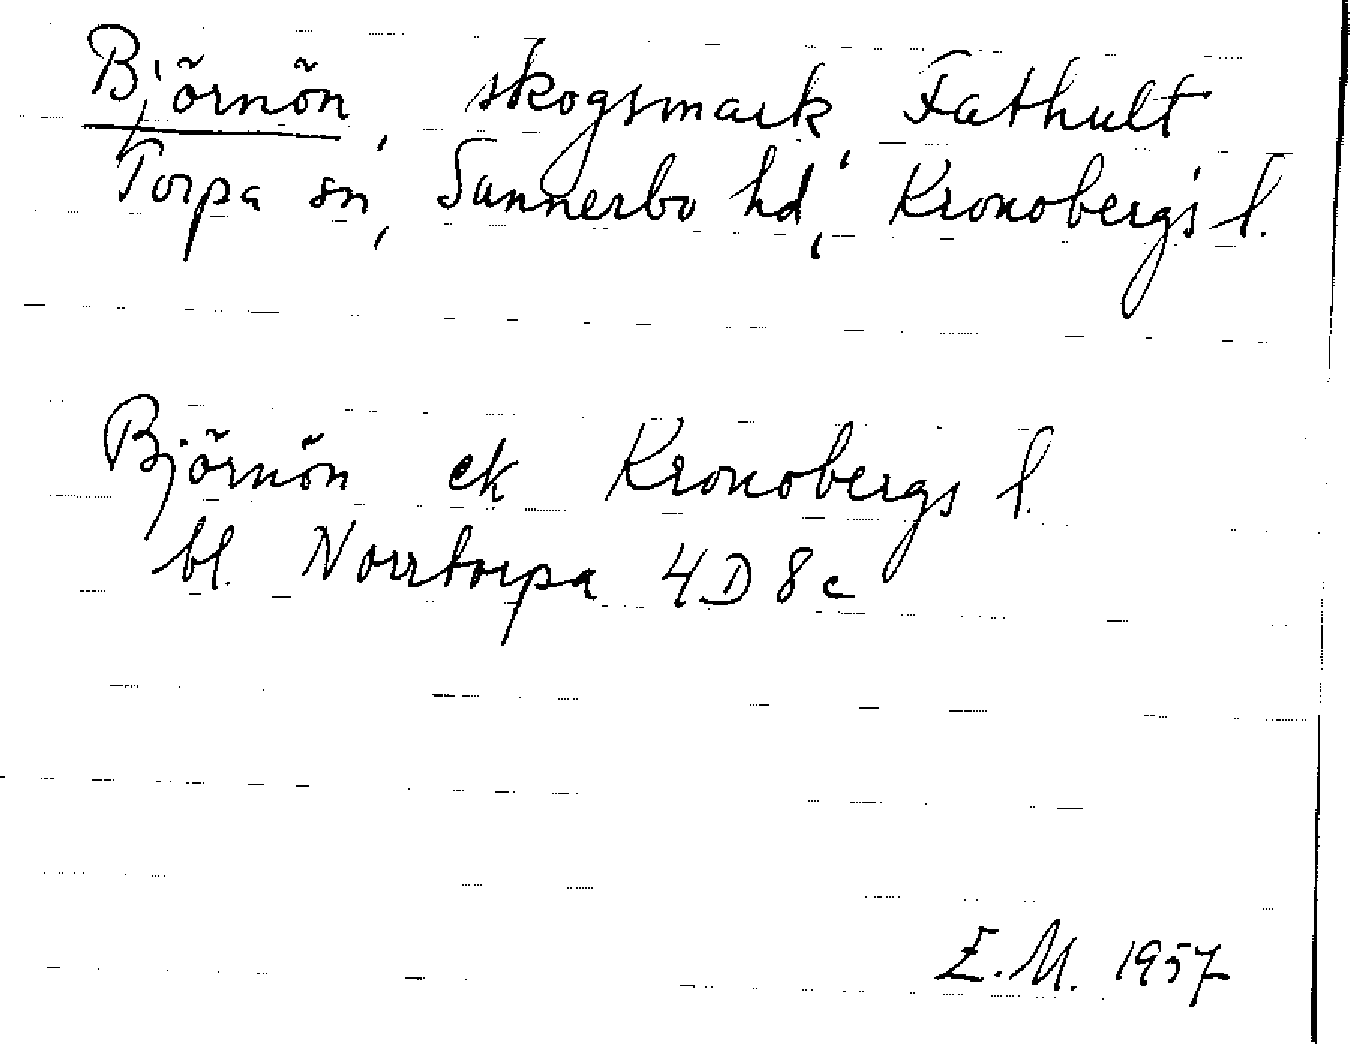 Björnön, skogsmark, Fathult
Torpa sn, Sunnerbo hd, Kronobergs l.
Björnön ek Kronobergs l.
bl. Norrtorpa 4D8c
E.M. 1957